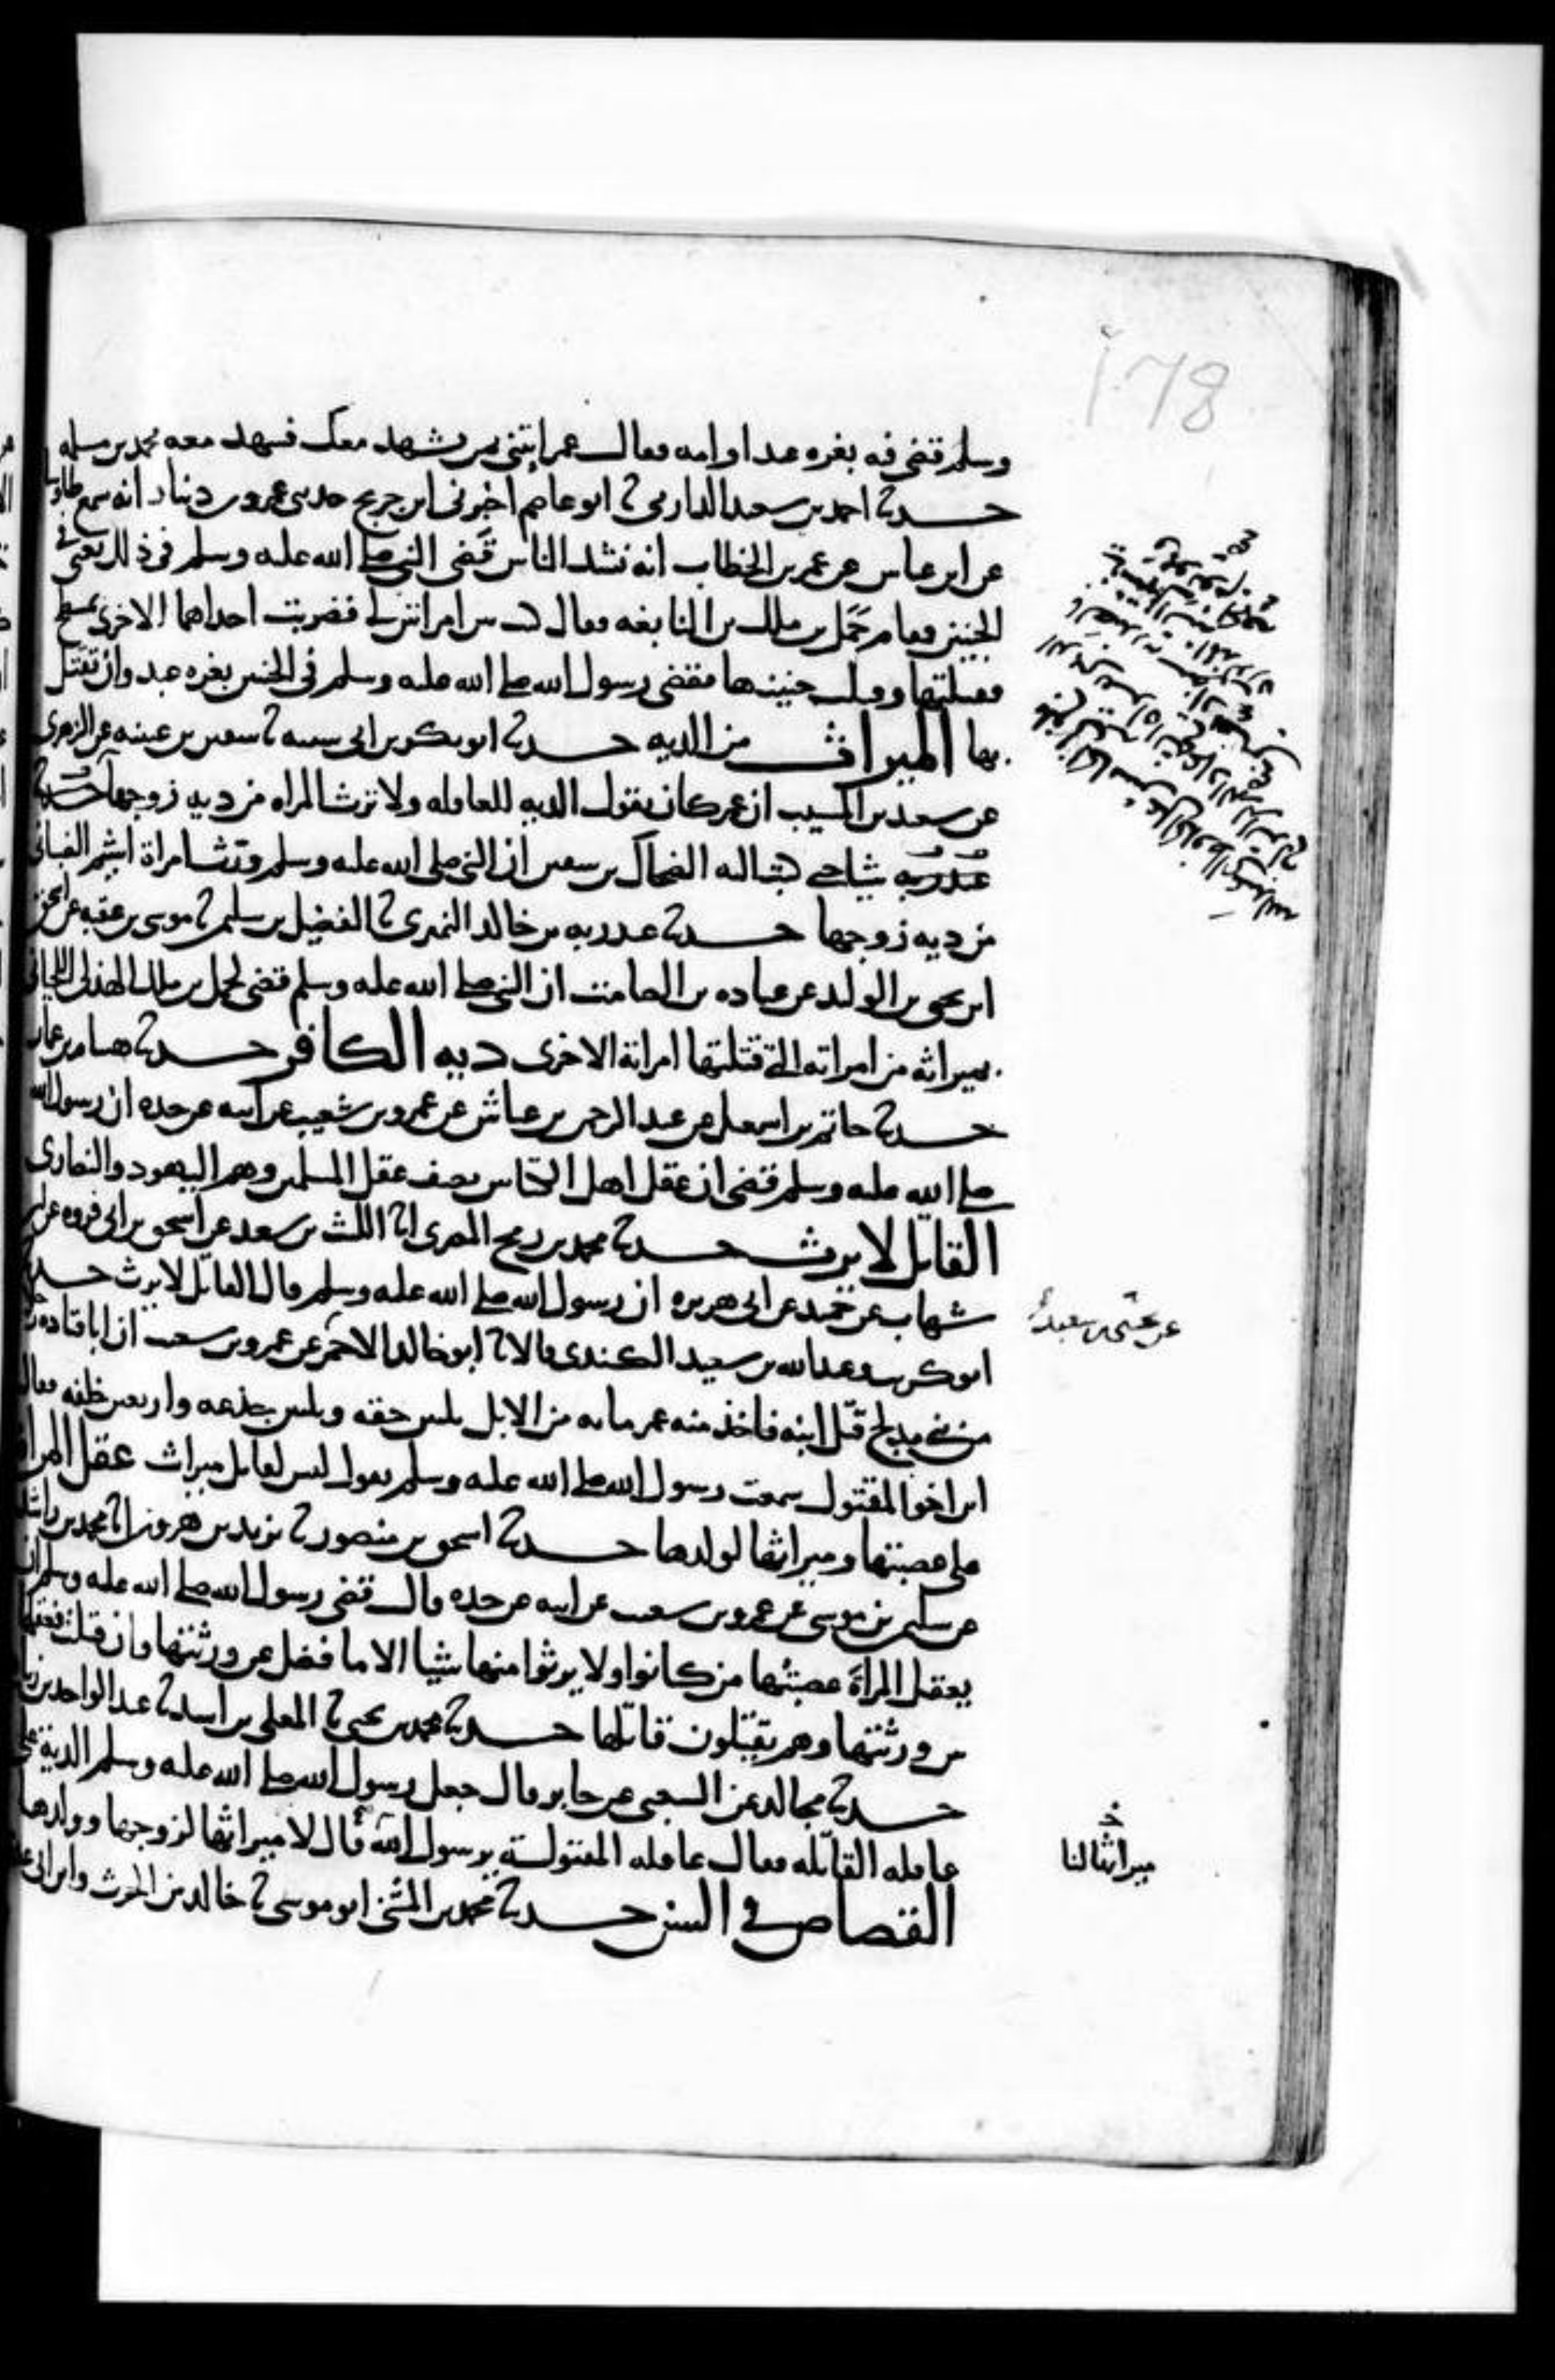 178
وسلم قضى فيه بغره عبد او امه فقال عمر ايتني بمن يشهد معك فشهد معه محمد بن مسلمه
حدثنا احمد بن سعيد الدارمي ثنا ابو عاصم اخبرني ابن جريج حدثني عمرو بن دينار انه سمع طاوسا
عن ابن عباس عن عمر بن الخطاب انه نشد الناس قضى النبي صلى الله عليه وسلم في ذلك يعني في
الجنين فقام حمل بن ملك بن النابغه فقال كنت بين امراتين لي فضربت احداهما الاخرى بمسطح
فقتلتها وقتلت جنينها فقضى رسول الله صلى الله عليه وسلم في الجنين بغره عبد وان تقتل
بها الميراث من الديه حدثنا ابو بكر بن ابي شيبه ثنا سفين بن عيينه عن الزهري
عن سعيد بن المسيب ان عمر كان يقول الديه للعاقله ولا ترث المراه من ديه زوجها
شيا حتى كتب اليه الضحاك بن سفين ان النبي صلى الله عليه وسلم ورث امراة اشيم الضبابي
من ديه زوجها حدثنا عبد ربه بن خالد النميري ثنا الفضيل بن سليمن ثنا موسى بن عقبه عن اسحق
ابن يحيى بن الوليد عن عباده بن الصامت ان النبي صلى الله عليه وسلم قضى لحمل بن ملك الهذلي اللحياني
بميراثه من امراته التي قتلتها امراته الاخرى ديه الكافر حدثنا هشام بن عمار
حدثنا حاتم بن اسمعيل عن عبد الرحمن بن عياش عن عمرو بن شعيب عن ابيه عن جده ان رسول الله
صلى الله عليه وسلم قضى ان عقل اهل الكتابين نصف عقل المسلمين وهم اليهود والنصارى
القاتل لا يرث حدثنا محمد بن رمح المصري انا الليث بن سعد عن اسحق بن ابي فروه عن ابن
شهاب عن حميد عن ابي هريره ان رسول الله صلى الله عليه وسلم قال القاتل لا يرث حدثنا
عن يحيى بن سعيد
ابو كريب وعبد الله بن سعيد الكندي قالا ثنا ابو خالد الاحمر عن عمرو بن شعيب ان ابا قتاده
من بني مدلج قتل ابنه فاخذ منه عمر مايه من الابل ثلثين حقه وثلثين جذعه واربعين خلفه فقال
ابن اخو المقتول سمعت رسول الله صلى الله عليه وسلم يقول ليس لقاتل ميراث عقل المراة
على عصبتها وميراثها لولدها حدثنا اسحق بن منصور ثنا يزيد بن هرون انا محمد بن راشد
عن سليمن بن موسى عن عمرو بن شعيب عن ابيه عن جده قال قضى رسول الله صلى الله عليه وسلم ان
يعقل المراة عصبتها من كانوا ولا يرثوا منها شيا الا ما فضل عن ورثتها وان قتلت فعقلها
بين ورثتها وهم يقتلون قاتلها حدثنا محمد بن يحيى ثنا المعلى بن اسد ثنا عبد الواحد بن زياد
حدثنا مجالد عن الشعبي عن جابر قال جعل رسول الله صلى الله عليه وسلم الدية على
عاقله القاتله فقال عاقله المقتولة يرسول الله قال لا ميراثها لزوجها وولدها
ميراثها لنا
القصاص في السن حدثنا محمد بن المثنى ابو موسى ثنا خالد بن الحرث وابن ابي